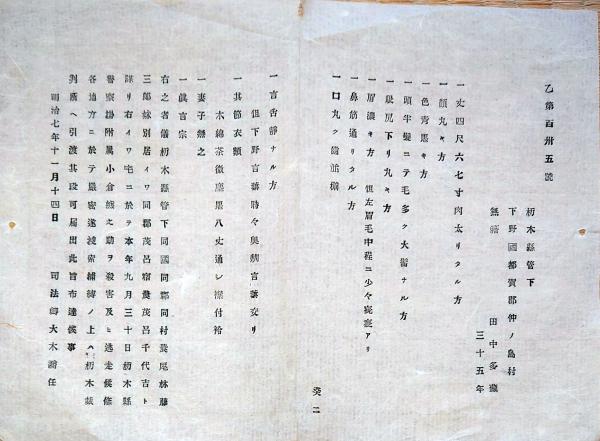 乙第百卅五號
栃木縣管下
下野國都賀郡仲ノ島村
無籍
田中多藏
三十五年
一丈四尺六七寸肉太リタル方
一顏丸キ方
一色青黑キ方
一頭半髮ニテ毛多ク大髷ナル方
一眼尻下リ丸キ方
一眉濃キ方 但左眉毛中程ニ少々疵痕アリ
一鼻筋通リタル方
一口丸ク齒並揃
癸二
一言舌靜ナル方
但下野言葉時々奧州言葉交リ
一其節衣類
木綿茶微塵黑八丈通シ襟付袷
一妻子無之
一眞言宗
右之者儀栃木縣管下同國同郡同村農尾林藤
三郎妹別居イワ同郡茂呂宿農茂呂千代吉ト
謀リ右イワ宅ニ於テ本年九月三十日栃木縣
警察掛附屬小倉熊之助ヲ殺害及ヒ逃走候條
各地方ニ於テ嚴密遂搜索捕縛ノ上ハ栃木裁
判所ヘ引渡其段可屆出此旨布達候事
明治七年十一月十四日
司法卿大木喬任